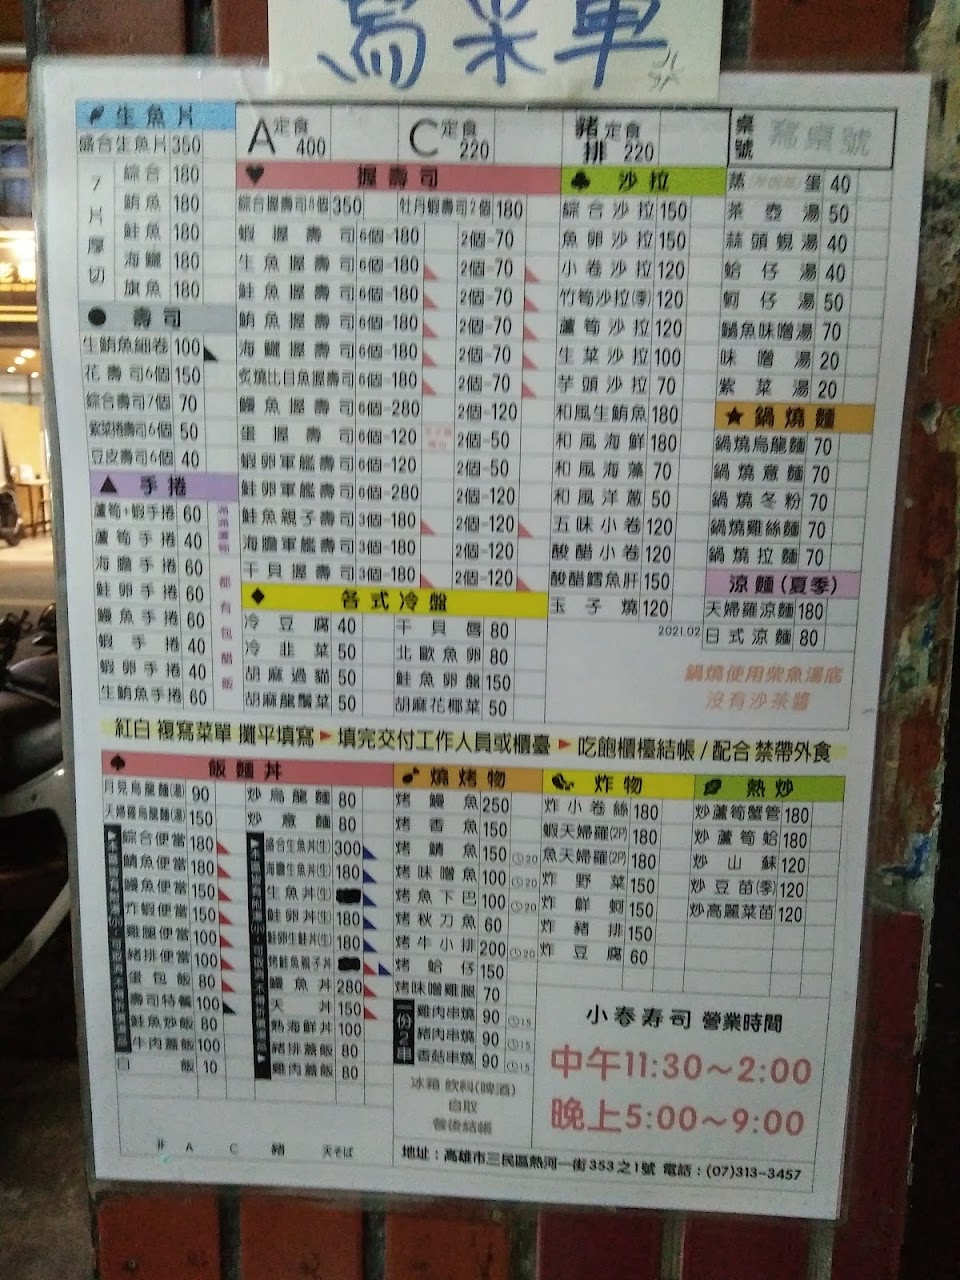 寫菜單
生魚片
盛合生魚片 350
7片厚切
綜合 180
鮪魚 180
鮭魚 180
海鱺 180
旗魚 180
壽司
生鮪魚細卷 100
花壽司6個 150
綜合壽司7個 70
紫菜捲壽司6個 50
豆皮壽司6個 40
手捲
蘆筍+蝦手捲 60
蘆筍手捲 40
海膽手捲 60
鮭卵手捲 60
鰻魚手捲 60
蝦手捲 40
蝦卵手捲 40
生鮪魚手捲 60
都有包醋飯
A定食 400
C定食 220
豬排定食 220
桌號 寫桌號
握壽司
綜合握壽司8個 350 牡丹蝦壽司2個 180
蝦握壽司 6個=180 2個=70
生魚握壽司 6個=180 2個=70
鮭魚握壽司 6個=180 2個=70
鮪魚握壽司 6個=180 2個=70
海鱺握壽司 6個=180 2個=70
炙燒比目魚握壽司 6個=180 2個=70
鰻魚握壽司 6個=280 2個=120
蛋握壽司 6個=120 2個=50
蝦卵軍艦壽司 6個=120 2個=50
鮭卵軍艦壽司 6個=280 2個=120
鮭魚親子壽司 3個=180 2個=120
海膽軍艦壽司 3個=180 2個=120
干貝握壽司 3個=180 2個=120
各式冷盤
冷豆腐 40 干貝唇 80
冷韭菜 50 北歐魚卵 80
胡麻過貓 50 鮭魚卵盤 150
胡麻龍鬚菜 50 胡麻花椰菜 50
沙拉
綜合沙拉 150
魚卵沙拉 150
小卷沙拉 120
竹筍沙拉(季) 120
蘆筍沙拉 120
生菜沙拉 100
芋頭沙拉 70
和風生鮪魚 180
和風海鮮 180
和風海藻 70
和風洋蔥 50
五味小卷 120
酸醋小卷 120
酸醋鱈魚肝 150
玉子燒 120
2021.02
蒸蛋 40
茶壺湯 50
蒜頭蜆湯 40
蛤仔湯 40
蚵仔湯 50
鍋魚味噌湯 70
味噌湯 20
紫菜湯 20
鍋燒麵
鍋燒烏龍麵 70
鍋燒意麵 70
鍋燒冬粉 70
鍋燒雞絲麵 70
鍋燒拉麵 70
涼麵(夏季)
天婦羅涼麵 180
日式涼麵 80
鍋燒使用柴魚湯底
沒有沙茶醬
紅白 複寫菜單 攤平填寫 ▶ 填完交付工作人員或櫃臺 ▶ 吃飽櫃檯結帳/配合 禁帶外食
飯麵丼
月見烏龍麵(湯) 90
天婦羅烏龍麵(湯) 150
綜合便當 180
鯖魚便當 180
鰻魚便當 150
炸蝦便當 150
雞腿便當 100
豬排便當 100
蛋包飯 80
壽司特餐 100
鮭魚炒飯 80
牛肉蓋飯 100
白飯 10
炒烏龍麵 80
炒意麵 80
盛合生魚丼(生) 300
海鱺生魚丼(生) 180
生魚丼(生)
鮭卵丼(生) 180
鮭卵生鮭丼(生) 180
烤鮭魚親子丼
鰻魚丼 280
天丼 150
熟海鮮丼 100
豬排蓋飯 80
雞肉蓋飯 80
燒烤物
烤鰻魚 250
烤香魚 150
烤鯖魚 150 20
烤味噌魚 100 20
烤魚下巴 100 20
烤秋刀魚 60
烤牛小排 200 20
烤蛤仔 150
烤味噌雞腿 70
一份2串
雞肉串燒 90 15
豬肉串燒 90 15
香菇串燒 90 15
冰箱 飲料(啤酒)
自取
餐後結帳
炸物
炸小卷絲 180
蝦天婦羅(2P) 180
魚天婦羅(2P) 180
炸野菜 150
炸鮮蚵 150
炸豬排 150
炸豆腐 60
熱炒
炒蘆筍蟹管 180
炒蘆筍蛤 180
炒山蘇 120
炒豆苗(季) 120
炒高麗菜苗 120
小春寿司 營業時間
中午11:30～2:00
晚上5:00～9:00
丼 A C 豬 天そば
地址：高雄市三民區熱河一街353之1號 電話：(07)313-3457